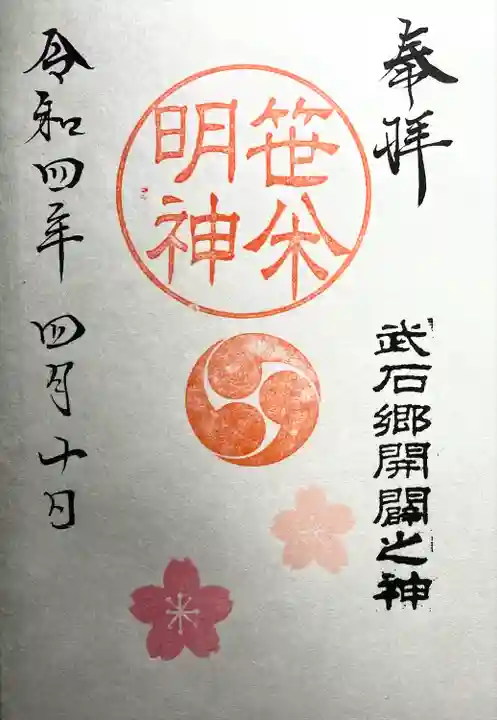 奉拝
武石郷開闢之神
笹焼
明神
令和四年 四月十日